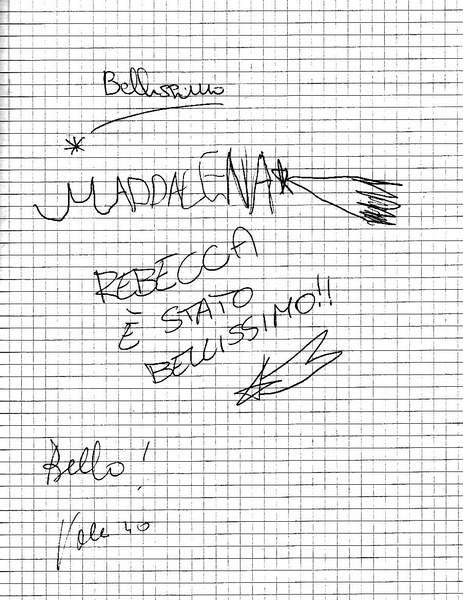 Bellissimo
MADDALENA
REBECCA
È STATO
BELLISSIMO!!
Bello!